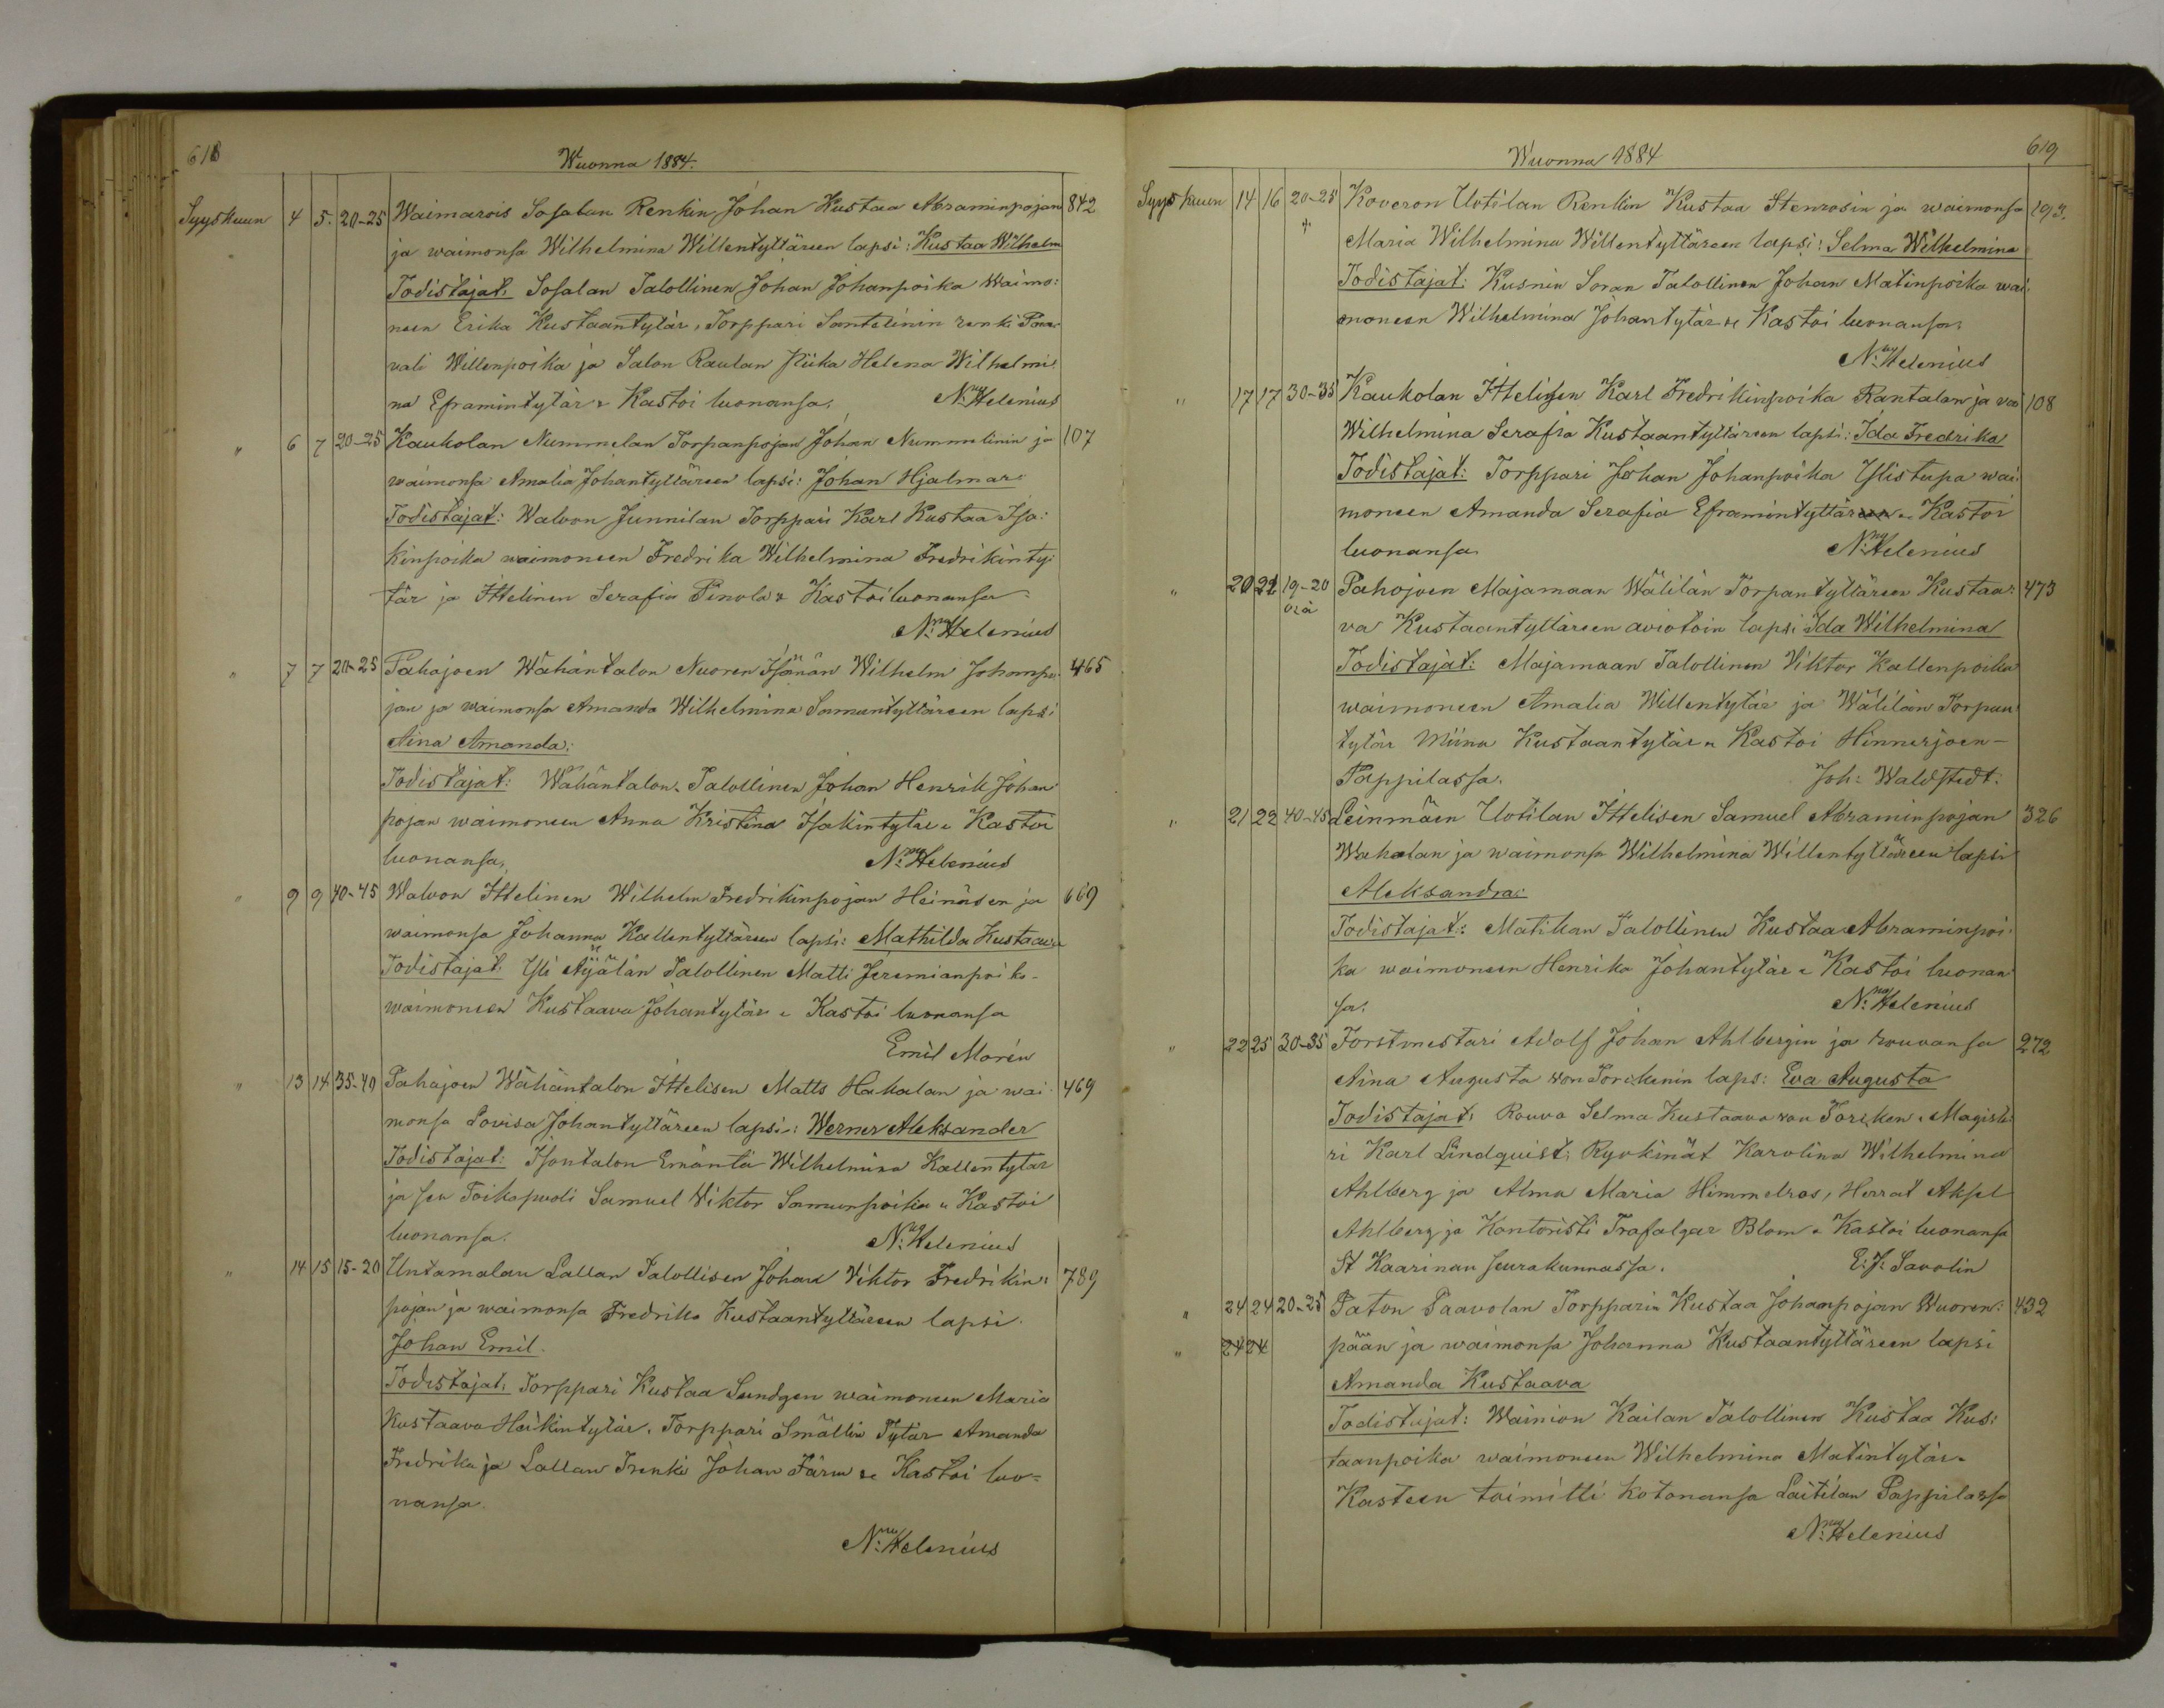 618
Wuonna 1884.
Syyskuun 4 5. 20-25 Waimarois Sosalan Renkin Johan Kustaa Abraminpojan 842
ja waimonsa Wilhelmina Willentyttären lapsi: Kustaa Wilhelm
Todistajat: Sosalan Talollinen Johan Johanpoika Waimo:
neen Erika Kustaantytär, Torppari Santelinin renki
vali Willenpoika ja Salon Raulan Piika Helena Wilhelmi:
na Eframintytär Kastoi luonansa. N:Helenius
" 6 7 20-25 Kaukolan Nummelan Torpanpojan Johan Nummelinin ja 107
waimonsa Amalia Johantyttäreen lapsi: Johan Hjalmar
Todistajat: Walvon Junnilan Torppari Karl Kustaa Isa:
kinpoika waimoneen Fredrika Wilhelmina Fredrikinty:
tär ja Ittelinen Serafia Penola Kastoi luonansa
N:Helenius
" 7 7 20-25 Pahojoen Wähäntalon Nuoren Isänän Wilhelm Johanpo: 465
jan ja waimonsa Amanda Wilhelmina Samuntyttäreen lapsi
Aina Amanda:
Todistajat: Wähäntalon Talollinen Johan Henrik Johan
pojan waimoneen Anna Kristina Isakintytär Kastoi
luonansa. N:Helenius
" 9 9 40-45 Walvon Ittelinen Wilhelm Fredrikinpojan Heinäsen ja 669
waimonsa Johanna Kallentyttäreen lapsi: Mathilda Kustaava
Todistajat: Yli Äijälän Talollinen Matti Jeremianpoika
waimoneen Kustaava Johantytär Kastoi luonansa
Emil Morén
" 13 14 35-40 Pahojoen Wähäntalon Ittelisen Matts Hakalan ja wai- 469
monsa Lovisa Johantyttäreen lapsi: Werner Aleksander
Todistajat: Isontalon Emäntä Wilhelmina Kallentytär
ja sen Poikapuoli Samuel Viktor Samunpoika Kastoi
luonansa. N:Helenius
" 14 15 15-20 Untamalan Lallan Talollisen Johan Viktor Fredrikin: 789
pojan ja waimonsa Fredrika Kustaantyttäreen lapsi
Johan Emil.
Todistajat: Torppari Kustaa Sundgen waimoneen Maria
Kustaava Heikintytär, Torppari Smällin Tytär Amanda
Fredrika ja Lallan Trenki Johan Färm Kastoi luo=
nansa.
N:Helenius
619
Wuonna 1884
Syyskuun 14 16 20-25 Koveron Uotilan Renkin Kustaa Stenrosin ja waimonsa 193.
Maria Wilhelmina Willentyttäreen lapsi: Selma Wilhelmina
Todistajat: Kusnin Soran Talollinen Johan Matinpoika wai:
moneen Wilhelmina Johantytär Kastoi luonansa.
N:Helenius
" 17 17 30-35 Kaukolan Ittelisen Karl Fredrikinpoika Rantalan ja vai 108
Wilhelmina Serafia Kustaantyttäreen lapsi: Ida Fredrika
Todistajat: Torppari Johan Johanpoika Ylistupa wai:
moneen Amanda Serafia Eframintyttäreen Kastoi
luonansa. N:Helenius
" 20 21 19-20 Pahojoen Majamaan Wälilän Torpantyttären Kustaa: 473
va Kustaantyttäreen aviotoin lapsi Ida Wilhelmina
Todistajat: Majamaan Talollinen Viktor Kallenpoika
waimoneen Amalia Willentytär ja Wälilän Torpan
tytär Miina Kustaantytär Kastoi Hinnerjoen-
Pappilassa. Joh: Waldstedt.
" 21 22 40-45 Leinmäen Uotilan Ittelisen Samuel Abraminpojan 326
Wakalan ja waimonsa Wilhelmina Willentyttäreen lapsi
Aleksandra:
Todistajat: Matikan Talollinen Kustaa Abraminpoi:
ka waimoneen Henrika Johantytär Kastoi luonan
sa. N:Helenius
" 22 25 30-35 Forstmestari Adolf Johan Ahlbergin ja rouvansa 272
Aina Augusta von Torckenin laps: Eva Augusta
Todistajat: Rouva Selma Kustaava von Torcken, Magiste:
ri Karl Lindquist, Ryökinät Karolina Wilhelmina
Ahlberg ja Alma Maria Himmelros, Herrat Aksel
Ahlberg ja Kontoristi Trafalgar Blom Kastoi luonansa
St Kaarinan seurakunnassa. E:J: Savolin
" 24 24 20-25 Paton Paavolan Torpparin Kustaa Johanpojan Wuoren: 432
" 24 24 pään ja waimonsa Johanna Kustaantyttäreen lapsi
Amanda Kustaava
Todistajat: Wainion Kailan Talollinen Kustaa Kus:
taanpoika waimoneen Wilhelmina Matintytär
Kasteen toimitti kotonansa Laitilan Pappilassa
N:Helenius